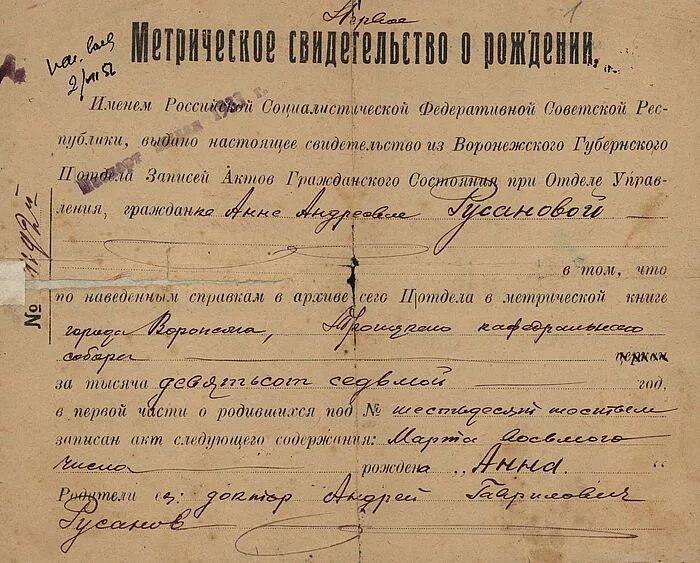 Первое
1
Метрическое свидетельство о рождении,
2/VII 52
Именем Российской Социалистической Федеративной Советской Рес-
публики, выдано настоящее свидетельство из Воронежского Губернского
П отдела Записей Актов Гражданского Состояния при Отделе Управ-
ления, гражданке Анне Андреевне Русановой
№ 1192
в том, что
по наведенным справкам в архиве сего П отдела в метрической книге
города Воронежа, Троицкого кафедрального
собора церкви
за тысяча девятьсот седьмой год,
в первой части о родившихся под № шестьдесят шестым
записан акт следующего содержания: Марта восьмого
числа рождена „Анна“
Родители ея: доктор Андрей Гаврилович
Русанов